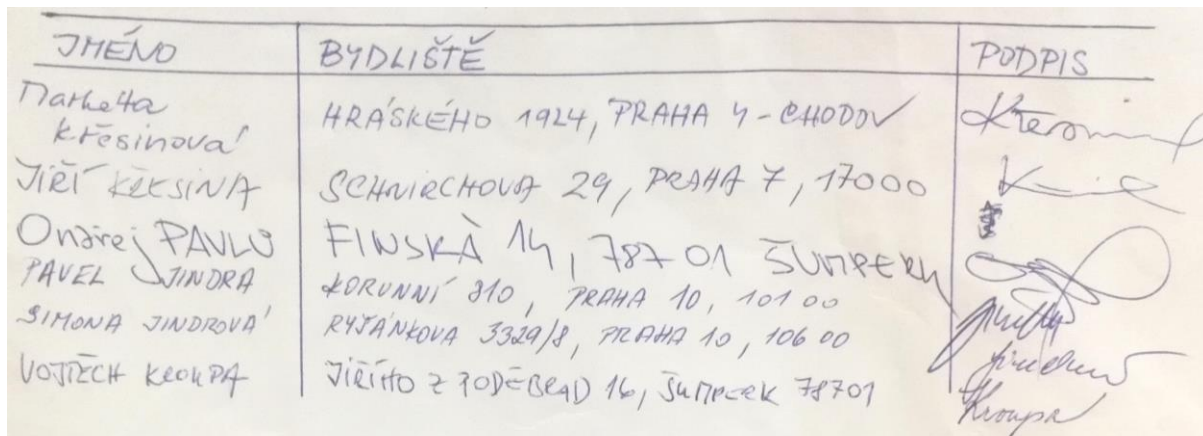 JMÉNO BYDLIŠTĚ PODPIS
Markéta
Křesinová HRÁSKÉHO 1924, PRAHA 4 - CHODOV
JIŘÍ KŘESINA SCHNIRCHOVA 29, PRAHA 7, 17000
Ondřej PAVLŮ FINSKÁ 14, 787 01 ŠUMPERK
PAVEL JINDRA KORUNNÍ 810, PRAHA 10, 101 00
SIMONA JINDROVÁ RYŠÁNKOVA 3329/8, PRAHA 10, 106 00
VOJTĚCH KROUPA JIŘÍHO Z PODĚBRAD 16, ŠUMPERK 78701
Kroupa